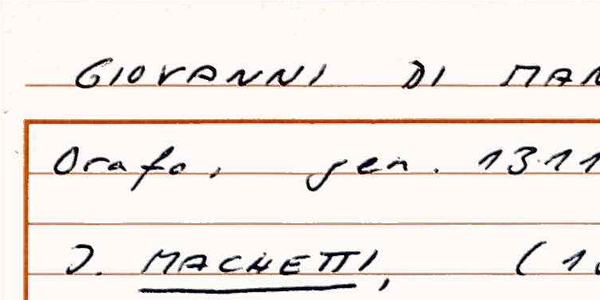 GIOVANNI DI MAR
Orafo, gen. 1311
I. MACHETTI, (1